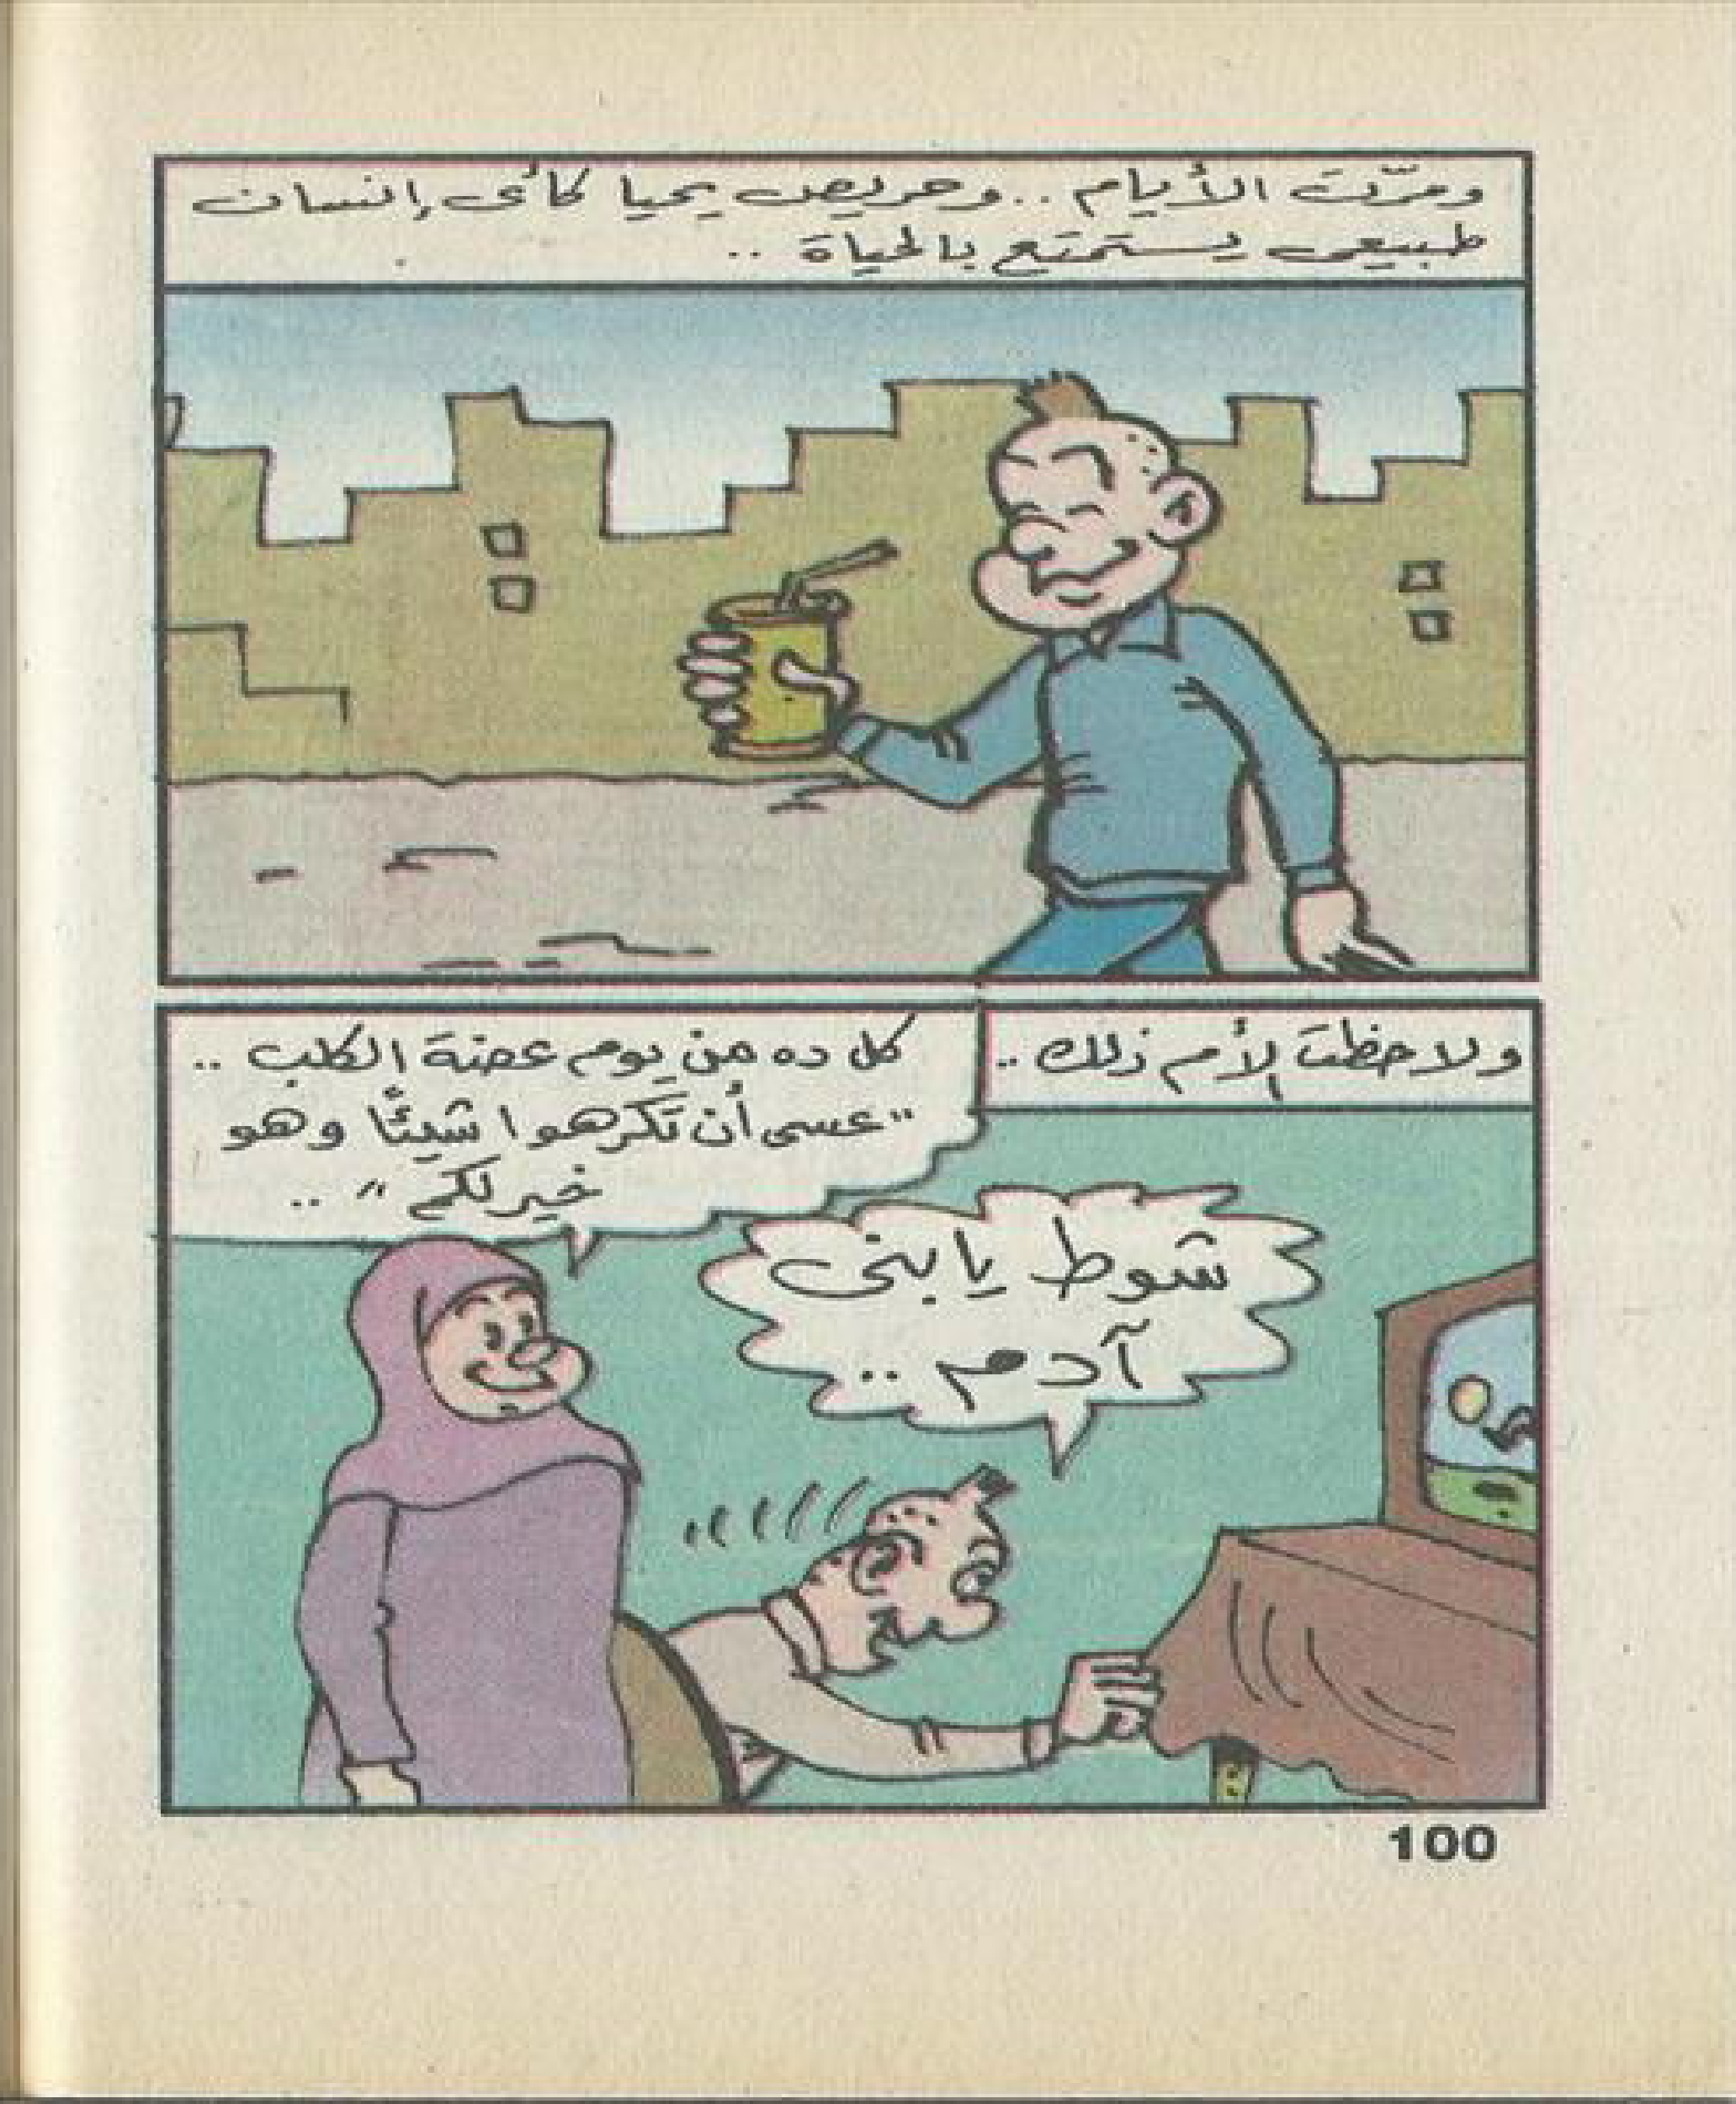 ومرّت الأيام .. وحريص يحيا كأى إنسان
طبيعى يستمتع بالحياة ..
ولاحظت الأم ذلك ..
كل ده من يوم عضة الكلب ..
"عسى أن تكرهوا شيئًا وهو
خير لكم" ..
شوط يا بنى
آدم ..
100